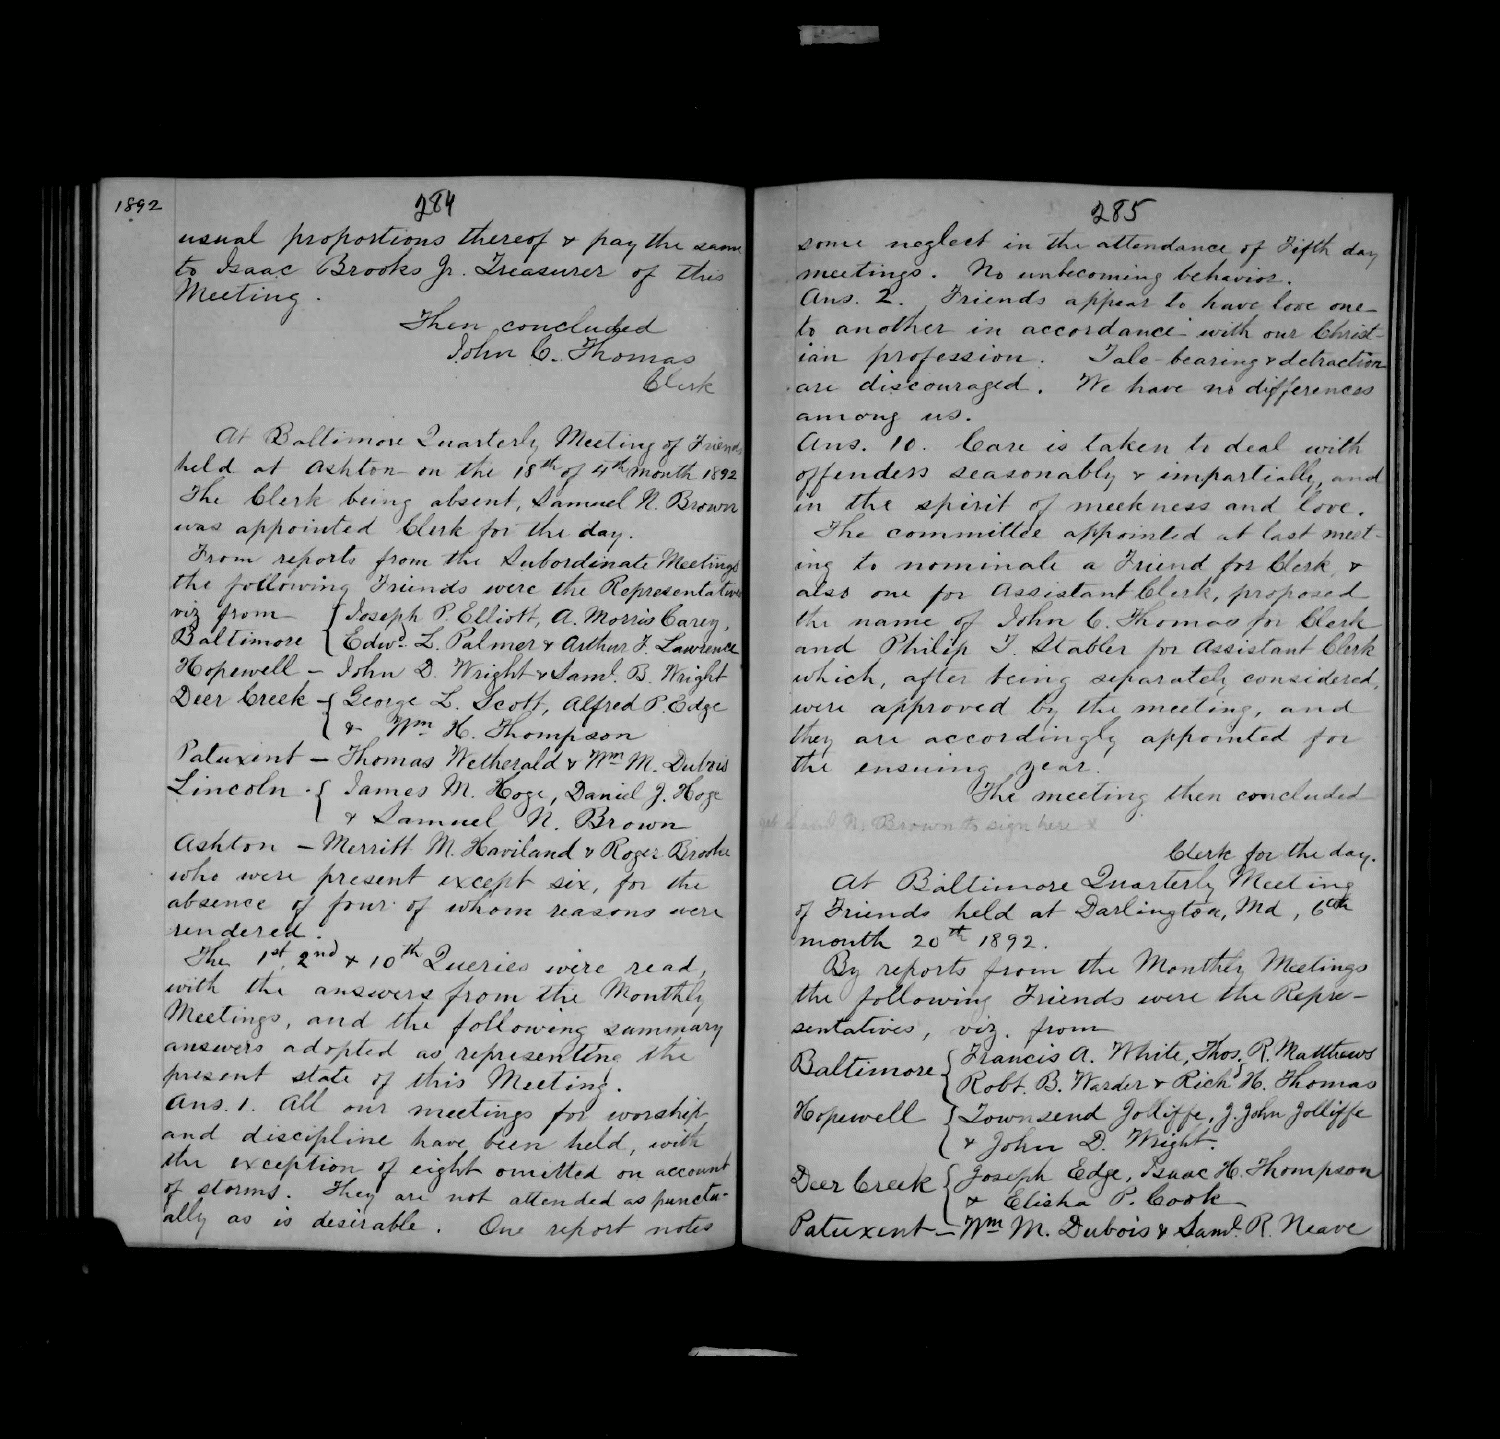 1892
284
usual proportions thereof & pay the same
to Isaac Brooks Jr. Treasurer of this
Meeting.
Then concluded
John C. Thomas
Clerk
At Baltimore Quarterly Meeting of Friends
held at Ashton on the 18th of 4th month 1892
The Clerk being absent, Samuel N. Brown
was appointed Clerk for the day.
From reports from the Subordinate Meetings
the following Friends were the Representatives
viz from { Joseph P. Elliott, A. Morris Carey,
Baltimore { Edwd. L. Palmer & Arthur F. Lawrence
Hopewell — John D. Wright & Saml. B. Wright
Deer Creek — { George L. Scott, Alfred P. Edge
& Wm H. Thompson
Patuxent — Thomas Wetherald & Wm M. Dubois
Lincoln - { James M. Hoge, Daniel J. Hoge
& Samuel N. Brown
Ashton — Merritt M. Haviland & Roger Brooke
who were present except six, for the
absence of four of whom reasons were
rendered.
The 1st, 2nd & 10th Queries were read,
with the answers from the Monthly
Meetings, and the following summary
answers adopted as representing the
present state of this Meeting.
Ans. 1. All our meetings for worship
and discipline have been held, with
the exception of eight omitted on account
of storms. They are not attended as punctu-
ally as is desirable. One report notes
285
some neglect in the attendance of Fifth day
meetings. No unbecoming behavior.
Ans. 2. Friends appear to have love one
to another in accordance with our Christ-
ian profession. Tale-bearing & detraction
are discouraged. We have no differences
among us.
Ans. 10. Care is taken to deal with
offenders seasonably & impartially, and
in the spirit of meekness and love.
The committee appointed at last meet-
ing to nominate a Friend for Clerk, &
also one for Assistant Clerk, proposed
the name of John C. Thomas for Clerk
and Philip T. Stabler for Assistant Clerk
which, after being separately considered,
were approved by the meeting, and
they are accordingly appointed for
the ensuing year.
The meeting then concluded
N. Brown to sign here
Clerk for the day.
At Baltimore Quarterly Meeting
of Friends held at Darlington, Md, 6th
month 20th 1892.
By reports from the Monthly Meetings
the following Friends were the Repre-
sentatives, viz. from
Baltimore { Francis A. White, Thos. R. Matthews
Robt. B. Warder & Richd H. Thomas
Hopewell { Townsend Jolliffe, J. John Jolliffe
& John D. Wright.
Deer Creek { Joseph Edge, Isaac H. Thompson
& Elisha P. Cook
Patuxent — Wm M. Dubois & Saml. R. Neave